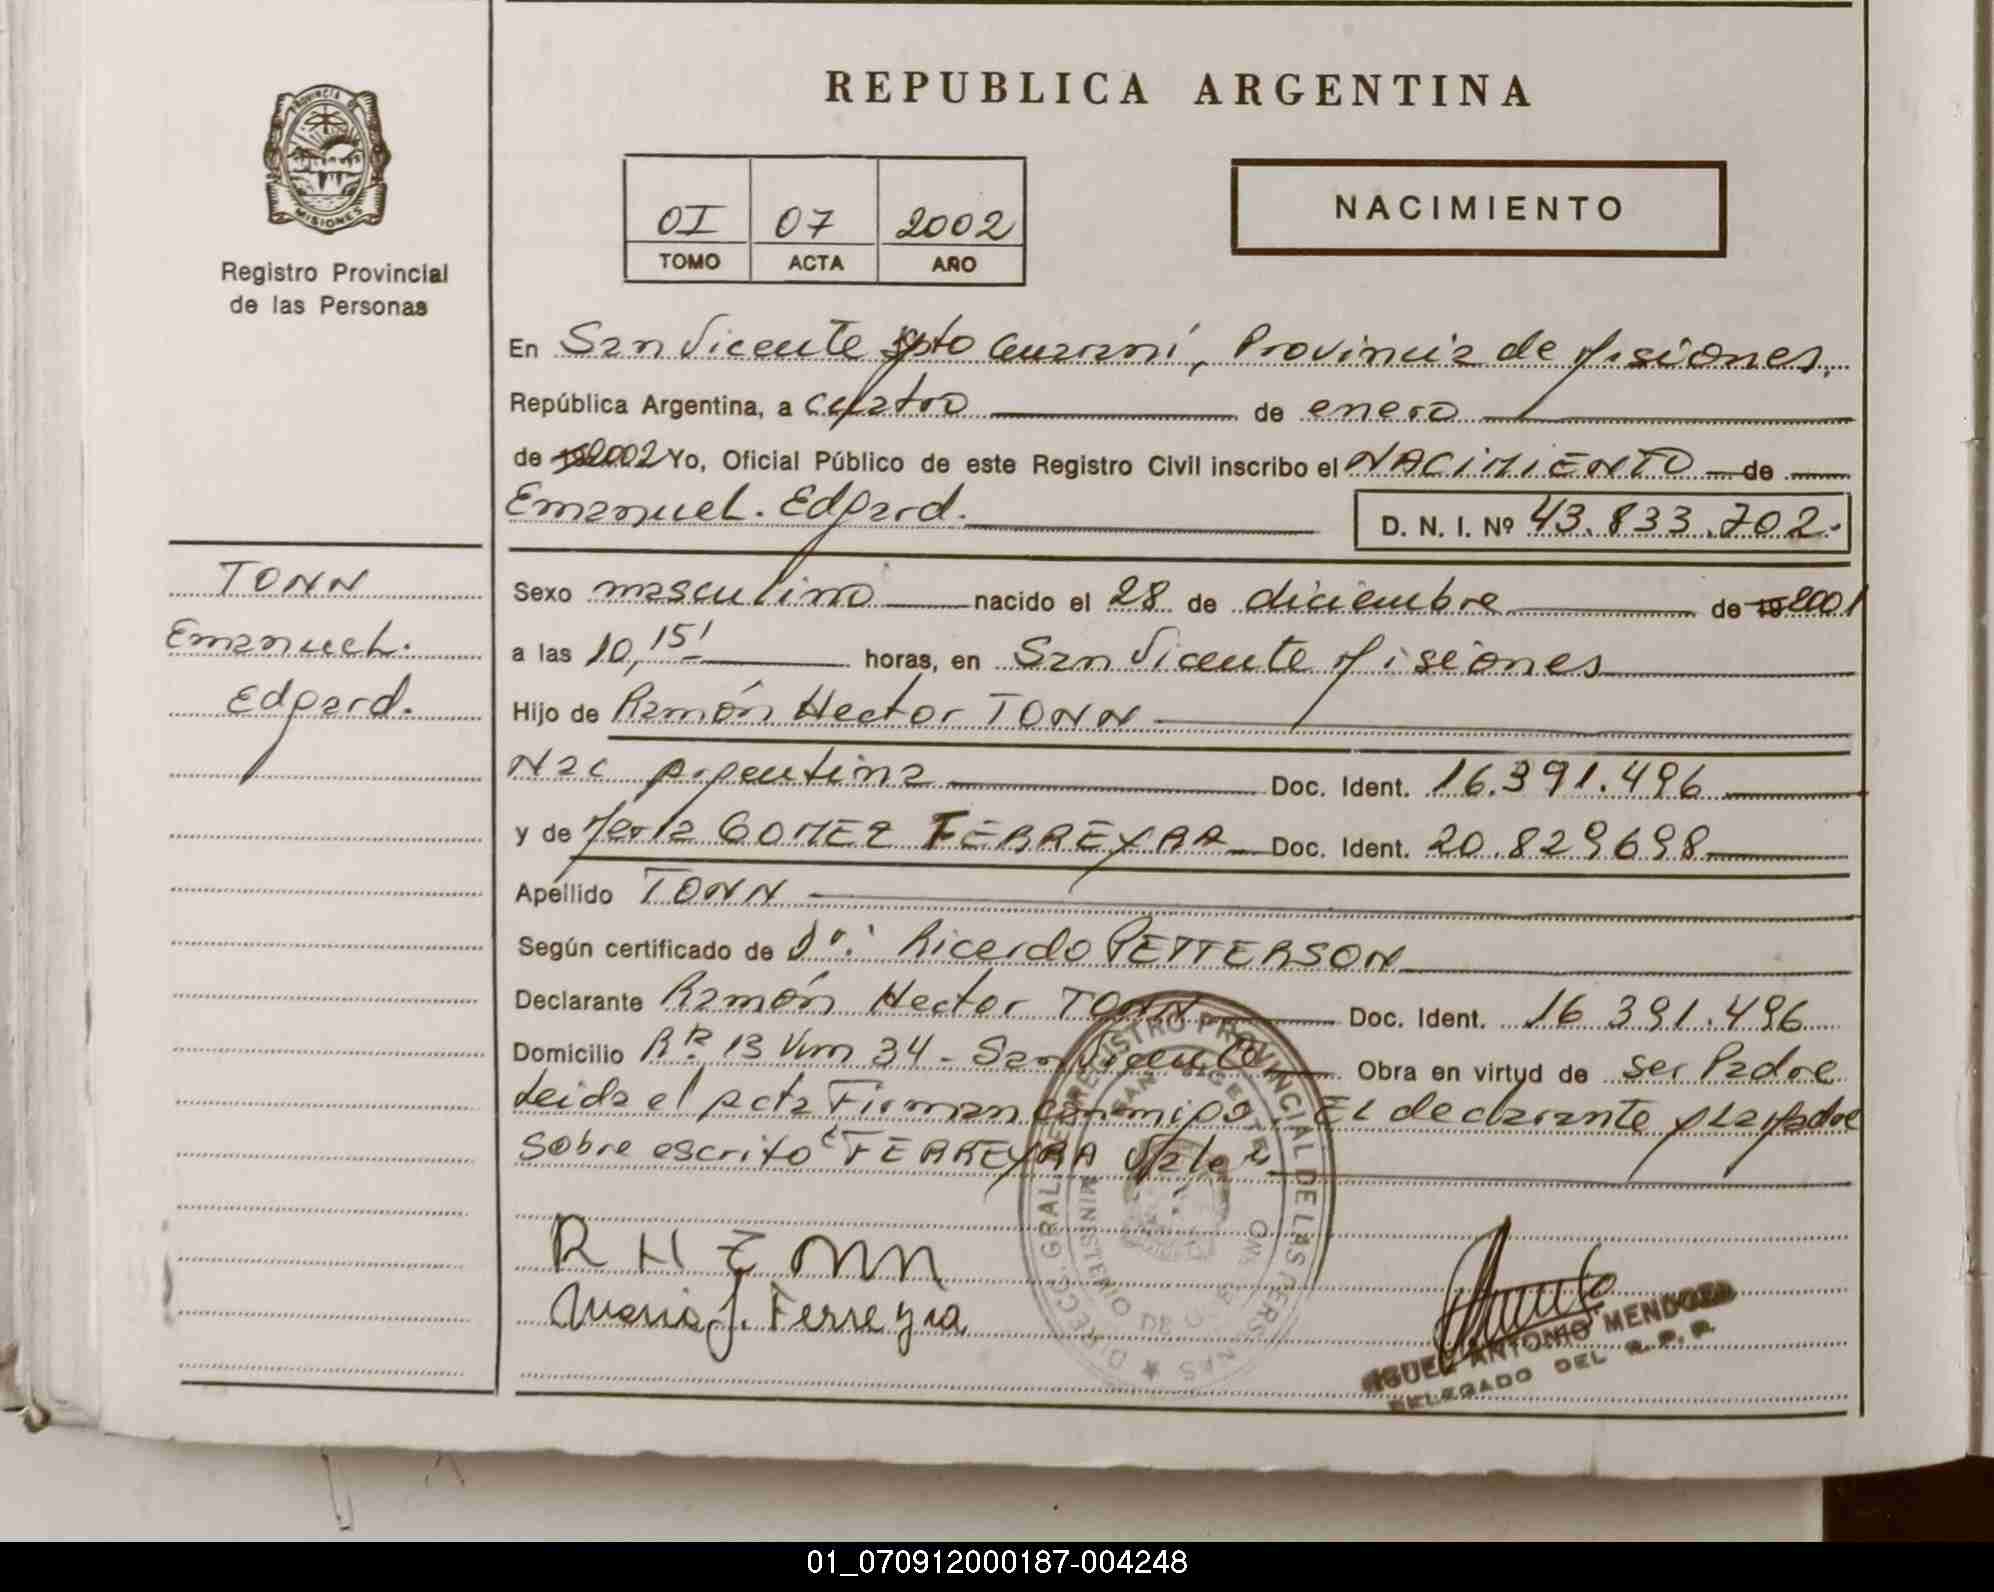 PROVINCIA DE
MISIONES
Registro Provincial
de las Personas
REPUBLICA ARGENTINA
OI 07 2002
TOMO ACTA AÑO
NACIMIENTO
En San Vicente Dpto Guaraní, Provincia de Misiones.
República Argentina, a cuatro de enero
de 2002 Yo, Oficial Público de este Registro Civil inscribo el NACIMIENTO de
Emanuel. Edgard. D. N. I. Nº 43.833.702.
TONN
Emanuel.
Edgard.
Sexo masculino nacido el 28 de diciembre de 19 2001
a las 10,15' horas, en San Vicente Misiones
Hijo de Ramón Hector TONN
Nac Argentina Doc. Ident. 16.391.496
y de María GOMEZ FERREYRA Doc. Ident. 20.829698
Apellido TONN
Según certificado de Dr. Ricardo PETTERSON
Declarante Ramón Hector TONN Doc. Ident. 16 391.496
Domicilio 13 Km 34 - San Vicente Obra en virtud de ser Padre
Leida el acta Firman conmigo. EL declarante y La Madre
Sobre escrito "FERREYRA Vale"
DIRECC. GRAL. DE REGISTRO PROVINCIAL DE LAS PERSONAS
MINISTERIO DE
SAN VICENTE
R H TONN
Maria J. Ferreyra
MIGUEL ANTONIO MENDOZA
DELEGADO DEL R. P. P.
01_070912000187-004248